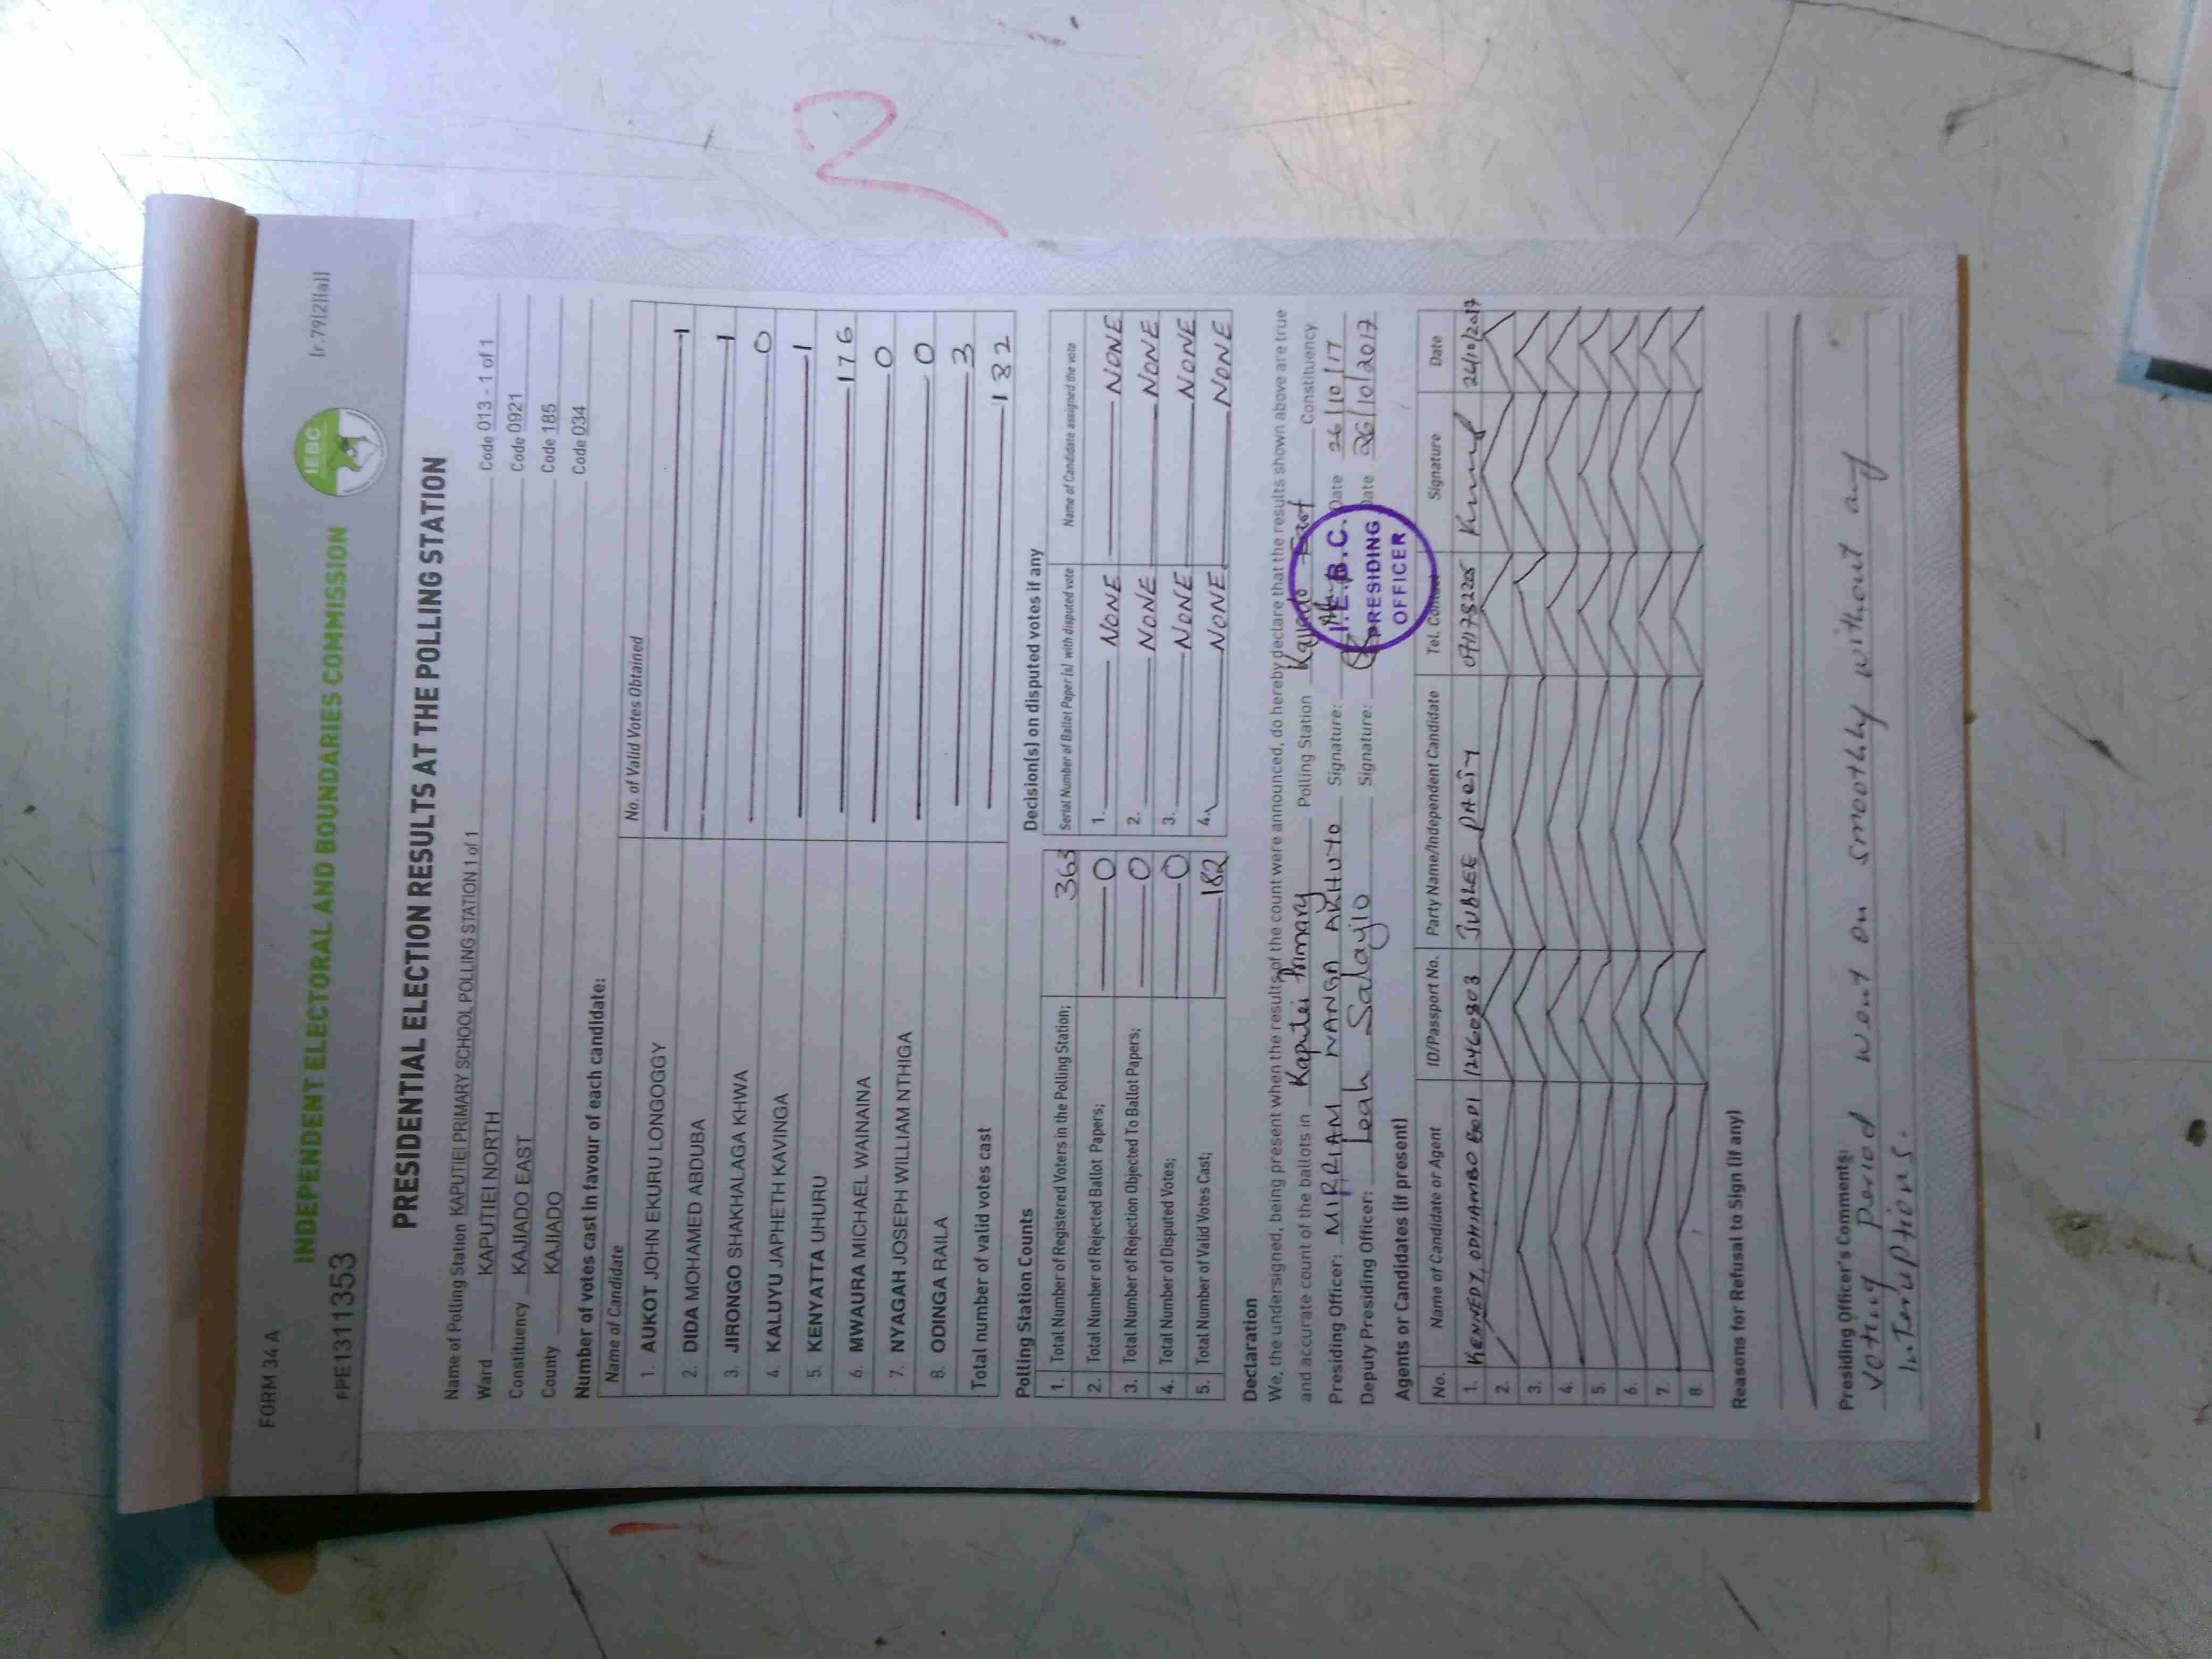 FORM 34 A
INDEPENDENT ELECTORAL AND BOUNDARIES COMMISSION
IEBC
(r.79(2)(a))
FPE1311353
PRESIDENTIAL ELECTION RESULTS AT THE POLLING STATION
Name of Polling Station KAPUTIEI PRIMARY SCHOOL POLLING STATION 1 of 1 Code 013 - 1 of 1
Ward KAPUTIEI NORTH Code 0921
Constituency KAJIADO EAST Code 185
County KAJIADO Code 034
Number of votes cast in favour of each candidate:
Name of Candidate No. of Valid Votes Obtained
1. AUKOT JOHN EKURU LONGOGGY 1
2. DIDA MOHAMED ABDUBA 1
3. JIRONGO SHAKHALAGA KHWA 0
4. KALUYU JAPHETH KAVINGA 1
5. KENYATTA UHURU 176
6. MWAURA MICHAEL WAINAINA 0
7. NYAGAH JOSEPH WILLIAM NTHIGA 0
8. ODINGA RAILA 3
Total number of valid votes cast 182
Polling Station Counts
1. Total Number of Registered Voters in the Polling Station; 363
2. Total Number of Rejected Ballot Papers; 0
3. Total Number of Rejection Objected To Ballot Papers; 0
4. Total Number of Disputed Votes; 0
5. Total Number of Valid Votes Cast; 182
Decision(s) on disputed votes if any
Serial Number of Ballot Paper (s) with disputed vote Name of Candidate assigned the vote
1. NONE NONE
2. NONE NONE
3. NONE NONE
4. NONE NONE
Declaration
We, the undersigned, being present when the results of the count were announced, do hereby declare that the results shown above are true
and accurate count of the ballots in Kaputei Primary Polling Station Kajiado East Constituency.
Presiding Officer: MIRRIAM NANGA AKHUTO Signature: Date 26/10/17
Deputy Presiding Officer: Leah Salaylo Signature: Date 26/10/2017
I.E.B.C.
PRESIDING
OFFICER
Agents or Candidates (if present)
No. Name of Candidate or Agent ID/Passport No. Party Name/Independent Candidate Tel. Contact Signature Date
1. KENNEDY ODHIAMBO 12460803 JUBLEE PARTY 26/10/2017
2.
3.
4.
5.
6.
7.
8.
Reasons for Refusal to Sign (if any)
Presiding Officer's Comments:
voting period went on smoothly without any
interuptions.